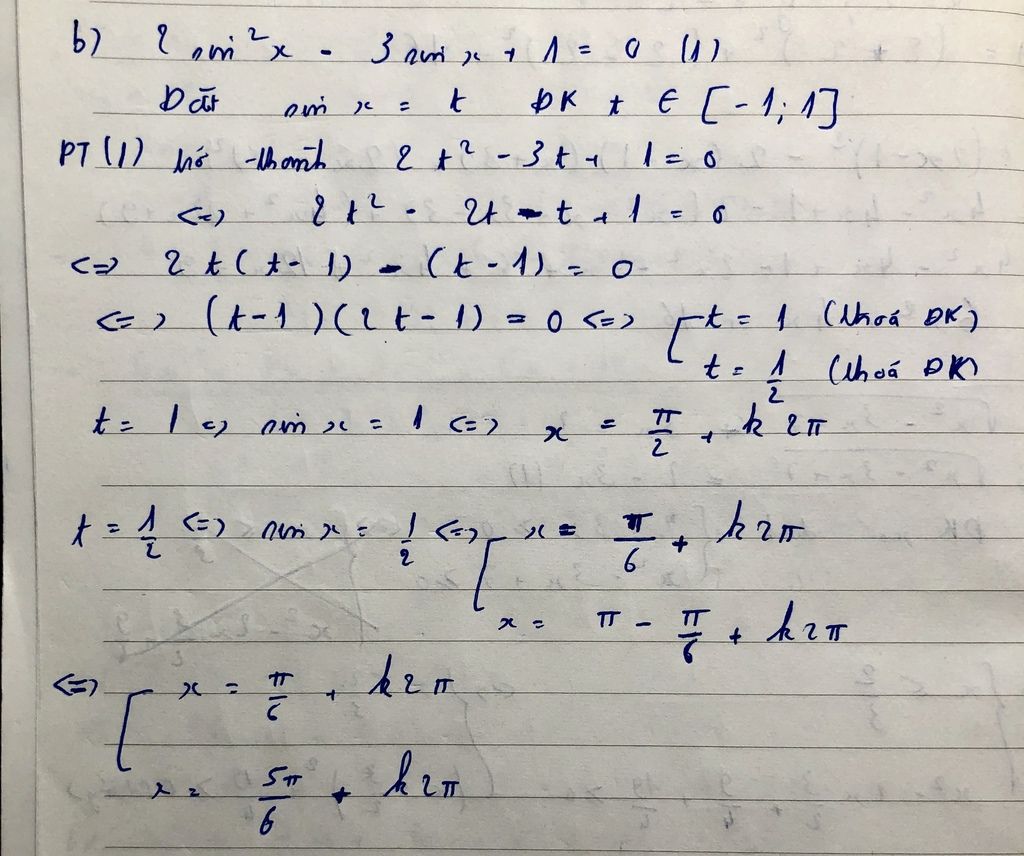 b) 2 sin²x - 3 sin x + 1 = 0 (1)
Đặt sin x = t ĐK t ∈ [-1; 1]
PT (1) trở thành 2t² - 3t + 1 = 0
<=> 2t² - 2t - t + 1 = 0
<=> 2t(t - 1) - (t - 1) = 0
<=> (t - 1)(2t - 1) = 0 <=> [ t = 1 (thoả ĐK)
t = 1/2 (thoả ĐK)
t = 1 => sin x = 1 <=> x = π/2 + k2π
t = 1/2 <=> sin x = 1/2 <=> [ x = π/6 + k2π
x = π - π/6 + k2π
<=> [ x = π/6 + k2π
x = 5π/6 + k2π